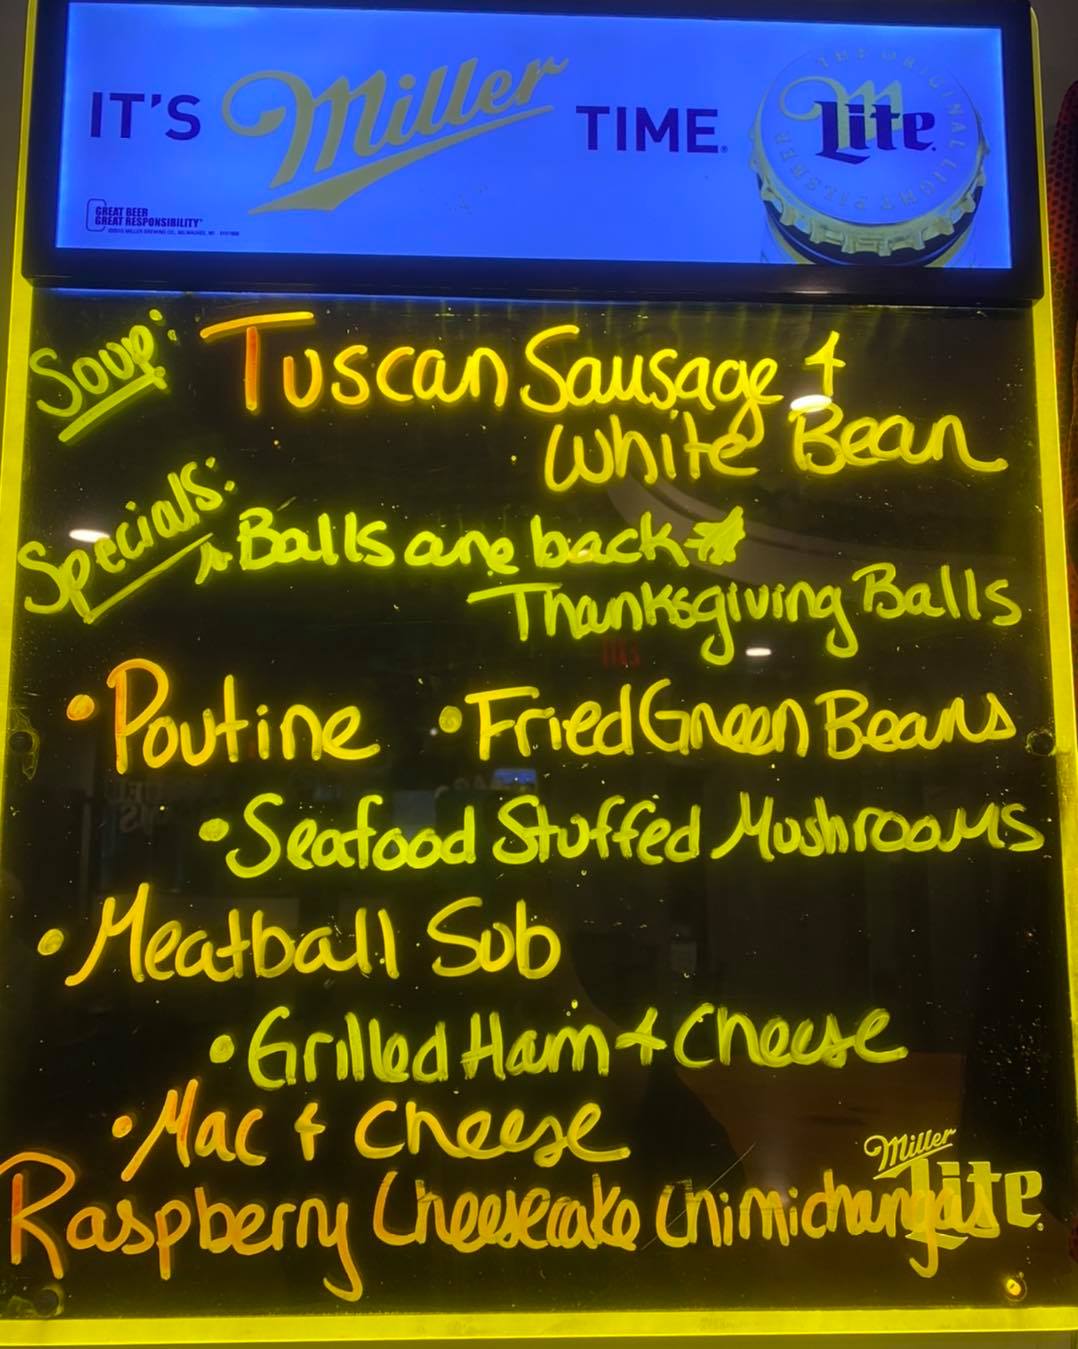 IT'S Miller TIME.
THE ORIGINAL LIGHT PILSNER
Miller Lite
GREAT BEER
GREAT RESPONSIBILITY
Soup: Tuscan Sausage +
White Bean
Specials: *Balls are back*
Thanksgiving Balls
•Poutine •Fried Green Beans
•Seafood Stuffed Mushrooms
•Meatball Sub
•Grilled Ham + Cheese
•Mac + Cheese
Raspberry Cheesecake Chimichangas
Miller
Lite